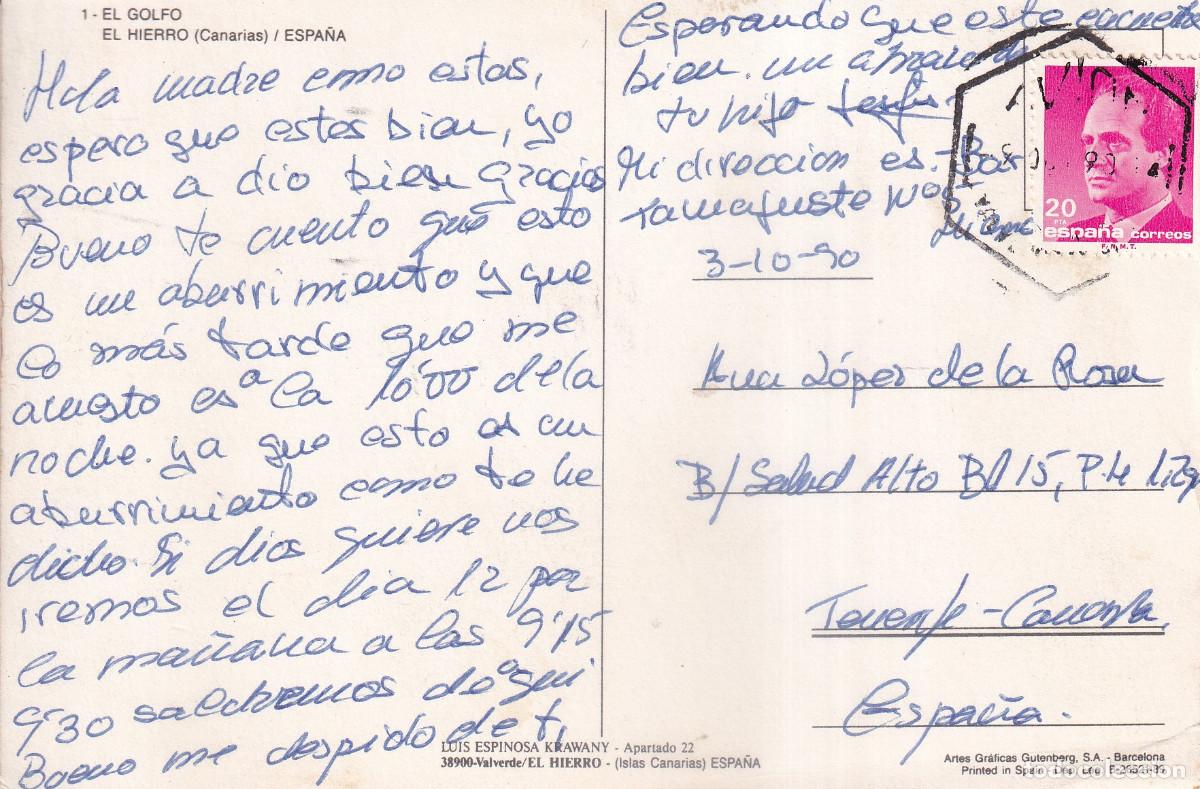 1 - EL GOLFO
EL HIERRO (Canarias) / ESPAÑA
Hola madre como estas,
espero que estes bien, yo
gracia a dio biese gracias
Bueno te cuento que esto
es un aburrimiento y que
lo más tarde que me
acuesto es a la 10'00 de la
noche. ya que esto es un
aburrimiento como te he
dicho. Si dios quiere nos
iremos el dia 12 por
la mañana a las 9'15
9'30 saldremos de aqui
Bueno me despido de ti,
Esperando que este encuentre
bien. un abrazo de
tu hijo
Mi direccion es. Bar
Tamajuste
3-10-90
20 PTA
españa correos
F.N.M.T.
Ana López de la Rosa
B/ Salud Alto Bl 15, P-4 izq
Tenerife - Canaria
España.
LUIS ESPINOSA KRAWANY - Apartado 22
38900-Valverde/EL HIERRO - (Islas Canarias) ESPAÑA
Artes Gráficas Gutenberg, S.A. - Barcelona
Printed in Spain Dep. Leg.
todocoleccion